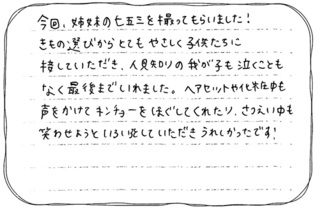 今回、姉妹の七五三を撮ってもらいました!
きもの選びからとてもやさしく子供たちに
接していただき、人見知りの我が子も泣くことも
なく最後までいれました。ヘアセットや化粧中も
声をかけてキンチョーをほぐしてくれたり、さつえい中も
笑わせようといろいろしていただきうれしかったです!